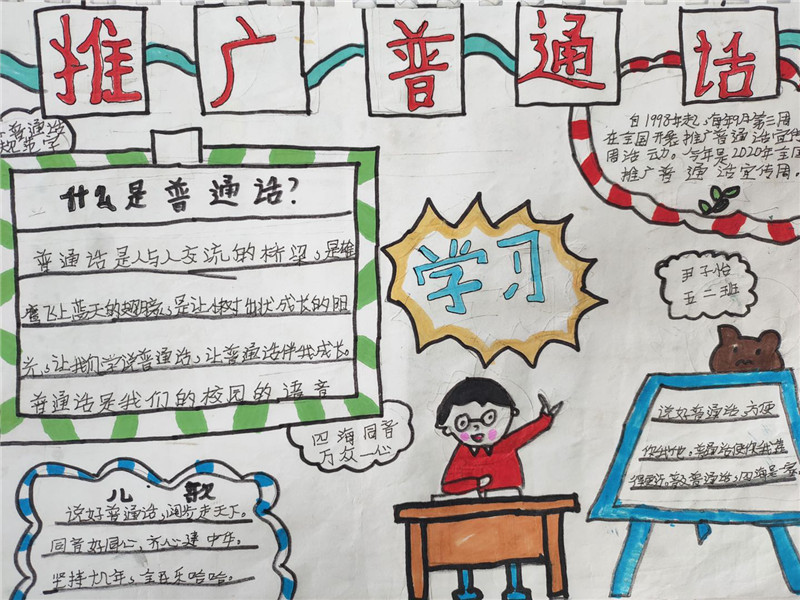 推广普通话
自1998年起,每年9月第三周
在全国开展推广普通话宣传
周活动。今年是2020年全国
推广普通话宣传周.
普通话
规范字
什么是普通话?
普通话是人与人交流的桥梁,是雄
鹰飞上蓝天的翅膀,是让小树出状成长的阳
光,让我们学说普通话,让普通话伴我成长。
普通话是我们的校园的语音
学习
尹子怡
五二班
四海同音
万众一心
说好普通话,方便
你我他,普通话使你我
四海是一家
儿歌
说好普通话,阔步走天下。
同音好同心,齐心建中华。
坚持十几年,全民乐哈哈。